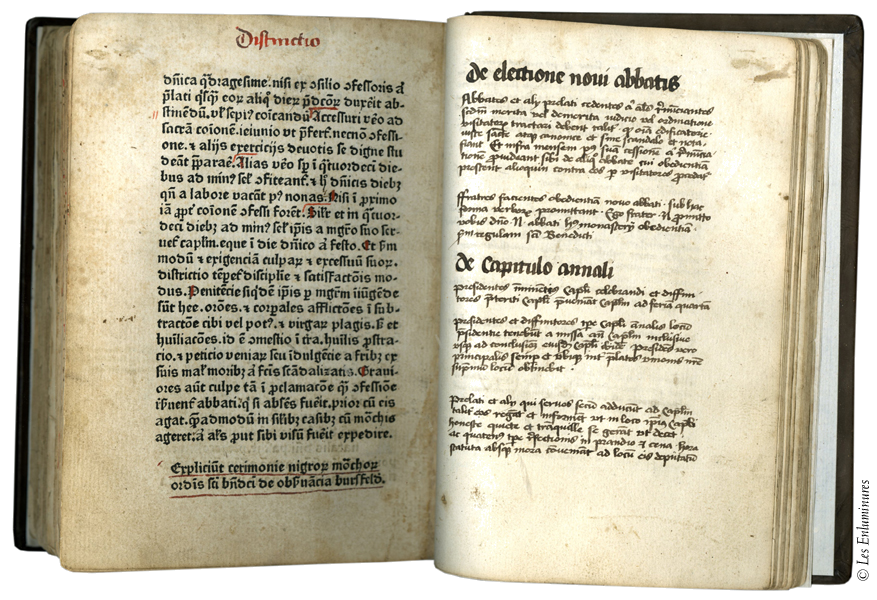 Distinctio
dñica q̃dragesime. nisi ex ɔsilio ɔfessoris aͥ
p̃lati qͥsq̃ eoꝝ aliqͦ dieꝝ p̃dcõꝝ duxeit ab-
stinẽdũ. vl̓ sepiꝰ coĩcandũ. Accessuri vẽo ad
sacrã coĩonẽ. ieiunio vt p̃fert̃. necnõ ɔfessi-
one. ⁊ alijs exercicijs deuotis se digne stu
deãt p̃parae. Alias vẽo sꝑ ĩ qͣtuordeci die-
bus ad minꝰ sel̓ ɔfiteant̃. ⁊ hͥ dñicis diebꝫ
qñ a labore vacãt pꝰ nonas. Nisi ĩ ꝓximo
iã ꝓpt̓ coĩonẽ ɔfessi forẽt. Silͬ et in qͣtuor-
deci diebꝫ ad minꝰ sel̓ ip̃is a mgr̃o suo ser-
uet̃ caplm̃. eque ĩ die dñico aͥ festo. Et sm̃
modũ ⁊ exigenciã culpaꝝ ⁊ excessuũ suoꝝ.
districtio tẽpet̃ discipline ⁊ satisfactõis mo-
dus. Penitẽcie siqͥdẽ ip̃is ꝑ mgr̃m iniũgẽde
sũt hee. orões. ⁊ corꝑales afflictões ĩ sub-
tractõe cibi vel potꝰ. ⁊ virgaꝝ plagis. sꝫ et
hũiliacões. id ẽ ɔmestio ĩ tr̃a. hũilis ꝓstra-
cio. ⁊ peticio veniaꝝ seu ĩdulgẽcie a fr̃ibꝫ ex
suis malꝭ moribꝫ aͥ fcĩs scãdalizatis. Graui-
ores aũt culpe tã ĩ ꝓclamacõe qͣꝫ ɔfessiõe
r̃buent̃ abbati. qͥ si absẽs fueit. prior cũ eis
agat. q̃madmodũ in silibꝫ casibꝫ cũ mõchis
ageret. aͥ als̃ ꝓut sibi visũ fueit expedire.
Expliciũt cerimonie nigroꝝ mõchoꝝ
ordis scĩ bñdci de obṽãcia bursfeld̓.
De electione noui abbatis
Abbates et alij prelati cedentes aͥ als̃ r̃nũciantes
scd̃m merita vel demerita iudicio vel ordinatione
visitatoꝝ tractari debent taliṫ qͦ oĩa edificatorie
iuste sc̃te atqꝫ canonice et sine scandalo et nota
fiant Et infra mensem pꝰ suã cessionẽ aͥ r̃nũcia
tionẽ ꝓuideant sibi de aliqͦ abbate cui obedientiã
prestent alioquin contra eos ꝑ visitatores ꝓcedat̃
Ffratres facientes obedientiã nouo abbati sub hac
forma verboꝝ promittant Ego frater N promitto
vobis dño N abbati hꝰ monasterij obedientiã
scd̃m regulam scĩ Benedicti
De Capitulo annali
presidentes ĩminẽtis Capl̓i celebrandi et diffini
tores p̃teriti Capl̓i p̃ueniãt Capl̓m ad feria quarta
presidentes et diffinitores tpe Capl̓i annalis locũ
p̃sidentie tenebũt a missa añ Capl̓m inclusiue
vsqꝫ ad conclusioñ eiusdẽ Capl̓i Presidẽs vero
principalis semꝑ et vbiqꝫ int̓ p̃latos vnionis nr̃e
supremũ locũ obtinebit
Prelati et alij qui seruos secũ adducũt ad Capl̓m
taliṫ eos regãt et informẽt vt in loco ip̃ius Capl̓i
honeste quiete et trãquille se gerãt vt decet
ac quatenꝰ tpe r̃fectionis in prandio et cena hora
statuta absqꝫ mora conueniãt ad locũ eis deputatũ
© Les Enluminures